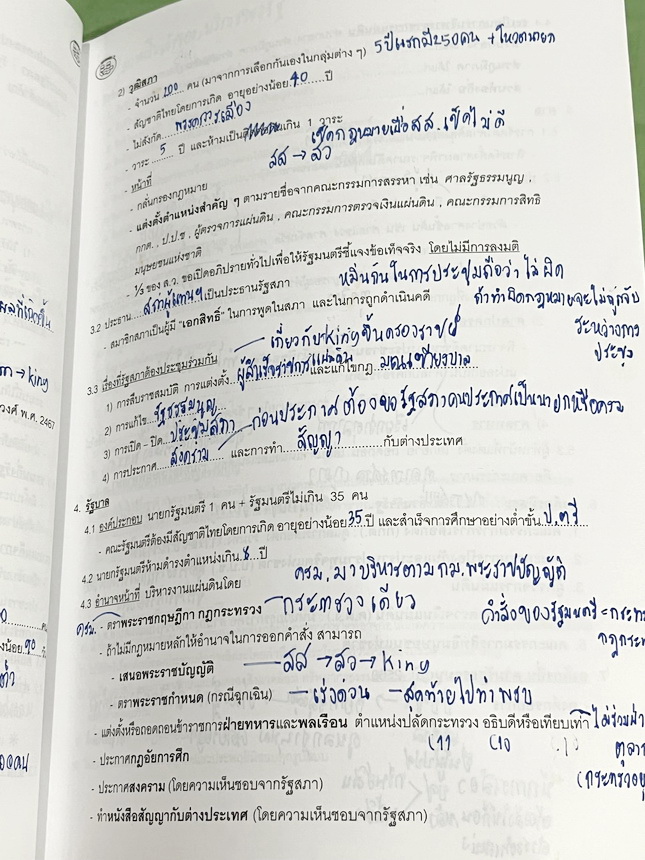 2) วุฒิสภา 5 ปีแรกมี 250 คน + โหวตนายก
- จำนวน 200 คน (มาจากการเลือกกันเองในกลุ่มต่าง ๆ)
- สัญชาติไทยโดยการเกิด อายุอย่างน้อย 40 ปี
- ไม่สังกัด พรรคการเมือง
- วาระ 5 ปี และห้ามเป็น เกิน 1 วาระ
- หน้าที่ สส → สว เช็คกฎหมายเผื่อ สส. เช็คไม่ดี
- กลั่นกรองกฎหมาย
- แต่งตั้งตำแหน่งสำคัญ ๆ ตามรายชื่อจากคณะกรรมการสรรหา เช่น ศาลรัฐธรรมนูญ ,
กกต. , ป.ป.ช , ผู้ตรวจการแผ่นดิน , คณะกรรมการตรวจเงินแผ่นดิน , คณะกรรมการสิทธิ
มนุษยชนแห่งชาติ
- 1/3 ของ ส.ว. ขอเปิดอภิปรายทั่วไปเพื่อให้รัฐมนตรีชี้แจงข้อเท็จจริง โดยไม่มีการลงมติ
3.2 ประธาน สภาผู้แทนฯ เป็นประธานรัฐสภา หมิ่นกันในการประชุมถือว่าไม่ผิด
- สมาชิกสภาเป็นผู้มี "เอกสิทธิ์" ในการพูดในสภา และในการถูกดำเนินคดี ถ้าทำผิดกฎหมายจะไม่ถูกจับ
ระหว่างการ
ประชุม
3.3 เรื่องที่รัฐสภาต้องประชุมร่วมกัน เกี่ยวกับ King ขึ้นครองราชย์
1) การสืบราชสมบัติ การแต่งตั้ง ผู้สำเร็จราชการแผ่นดิน และแก้ไขกฎ มณเฑียรบาล
2) การแก้ไข รัฐธรรมนูญ
3) การเปิด - ปิด ประชุมสภา ก่อนประกาศต้องขอรัฐสภา คนประกาศเป็นนายกหรือครม
4) การประกาศ สงคราม และการทำ สัญญา กับต่างประเทศ
4. รัฐบาล
4.1 องค์ประกอบ นายกรัฐมนตรี 1 คน + รัฐมนตรีไม่เกิน 35 คน
- คณะรัฐมนตรีต้องมีสัญชาติไทยโดยการเกิด อายุอย่างน้อย 35 ปี และสำเร็จการศึกษาอย่างต่ำขั้น ป.ตรี
4.2 นายกรัฐมนตรีห้ามดำรงตำแหน่งเกิน 8 ปี
4.3 อำนาจหน้าที่ บริหารงานแผ่นดินโดย ครม. มาบริหารตาม กม. พระราชบัญญัติ
ครม. - ตราพระราชกฤษฎีกา กฎกระทรวง — กระทรวงเดียว คำสั่งของรัฐมนตรี = กระทร
- ถ้าไม่มีกฎหมายหลักให้อำนาจในการออกคำสั่ง สามารถ กฎกระ
- เสนอพระราชบัญญัติ — สส → สว → King
- ตราพระราชกำหนด (กรณีฉุกเฉิน) — เร่งด่วน — สุดท้ายไปทำพรบ
- แต่งตั้งหรือถอดถอนข้าราชการฝ่ายทหารและพลเรือน ตำแหน่งปลัดกระทรวง อธิบดีหรือเทียบเท่า ไม่รวมฝ่า
C11 C10 ตุลาก
- ประกาศกฎอัยการศึก
- ประกาศสงคราม (โดยความเห็นชอบจากรัฐสภา)
- ทำหนังสือสัญญากับต่างประเทศ (โดยความเห็นชอบจากรัฐสภา)
→ King
วงศ์ พ.ศ. 2467